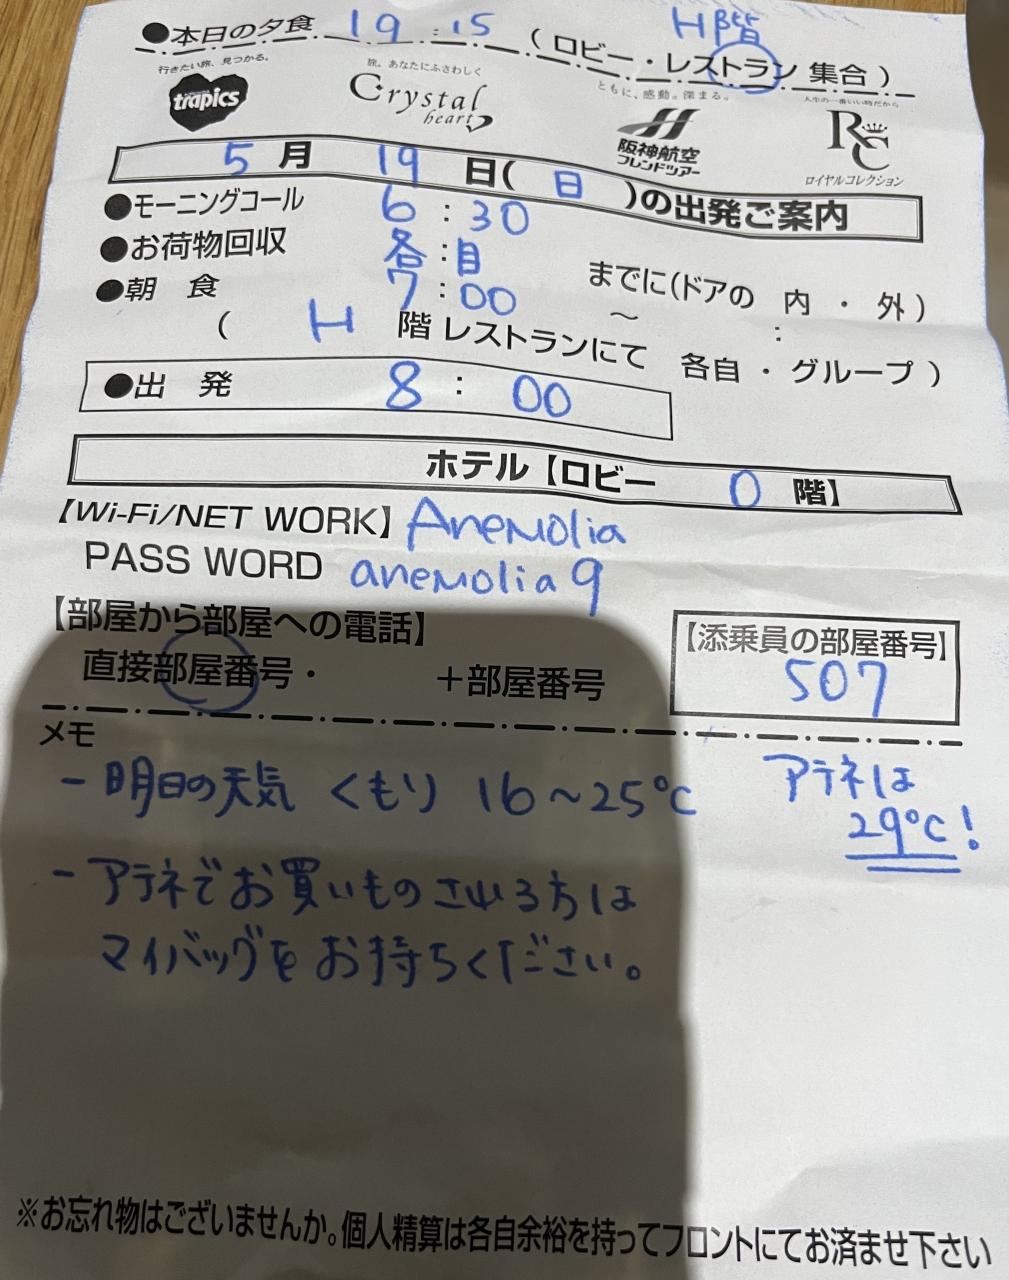 ●本日の夕食 19:15 (ロビー・レストラン 集合)
H階
行きたい旅、見つかる。
trapics
旅、あなたにふさわしく
Crystal heart
ともに、感動。深まる。
阪神航空
フレンドツアー
人生の一番いい時だから
RC
ロイヤルコレクション
5月 19日(日)の出発ご案内
●モーニングコール 6:30
●お荷物回収 各:自 までに(ドアの 内・外)
●朝 食 7:00 ~ :
( H 階 レストランにて 各自・グループ)
●出 発 8:00
ホテル【ロビー 0 階】
【Wi-Fi/NET WORK】 Anemolia
PASS WORD anemolia9
【部屋から部屋への電話】
直接部屋番号・ +部屋番号
【添乗員の部屋番号】
507
メモ
- 明日の天気 くもり 16~25℃
アテネは
29℃!
- アテネでお買いものされる方は
マイバッグをお持ちください。
※お忘れ物はございませんか。個人精算は各自余裕を持ってフロントにてお済ませ下さい